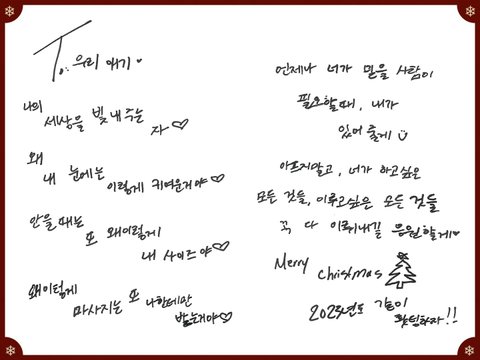 To. 우리 애기♥
나의
세상을 빛내주는
자♡
왜
내 눈에는
이렇게 귀여운거야♡
안을때는
또 왜이렇게
내 사이즈야♡
왜이렇게
마사지는 또 나한테만
받는거야♡
언제나 너가 믿을 사람이
필요할때, 내가
있어줄게
아프지말고, 너가 하고싶은
모든 것들, 이루고싶은 모든 것들
꼭 다 이뤄내길 응원할게♥
Merry
Christmas
2025년도 같이
화팅하자!!